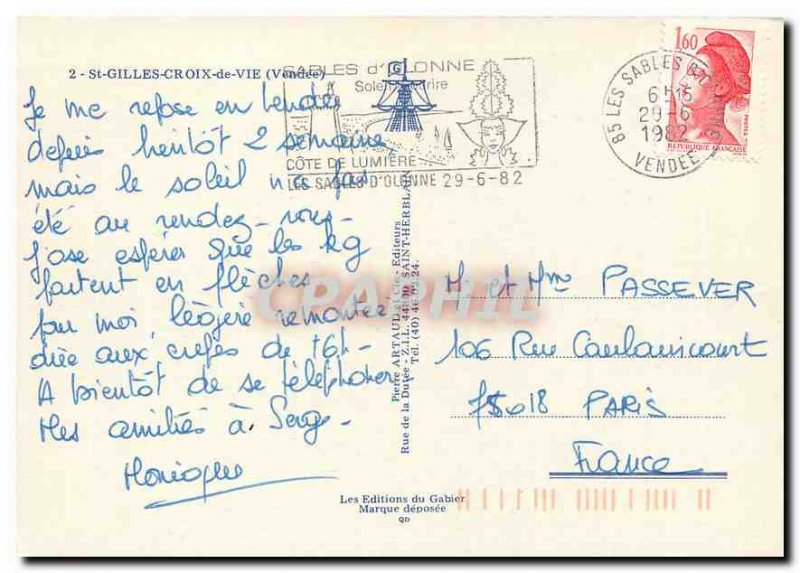 2 - St-GILLES-CROIX-de-VIE (Vendée)
Je me repose en Vendée
depuis bientôt 2 semaines
mais le soleil n'a pas
été au rendez-vous-
J'ose espérer que les kg
partent en flèches
pour moi légère remontée
due aux crêpes de
A bientôt de se téléphoner
Mes amitiés à Serge-
Monique
SABLES d'OLONNE
CÔTE DE LUMIÈRE
LES SABLES D'OLONNE 29-6-82
85 LES SABLES D'OLONNE
29-6
1982
VENDEE
1,60
REPUBLIQUE FRANÇAISE
Pierre ARTAUD et Cie - Editeurs
Rue de la Dutée - Z.I.L. 44800 SAINT-HERBLAIN
CPAPHIL
M. et Mme PASSEVER
106 Rue Caulaincourt
75018 PARIS
France
Les Editions du Gabier
Marque déposée
QD